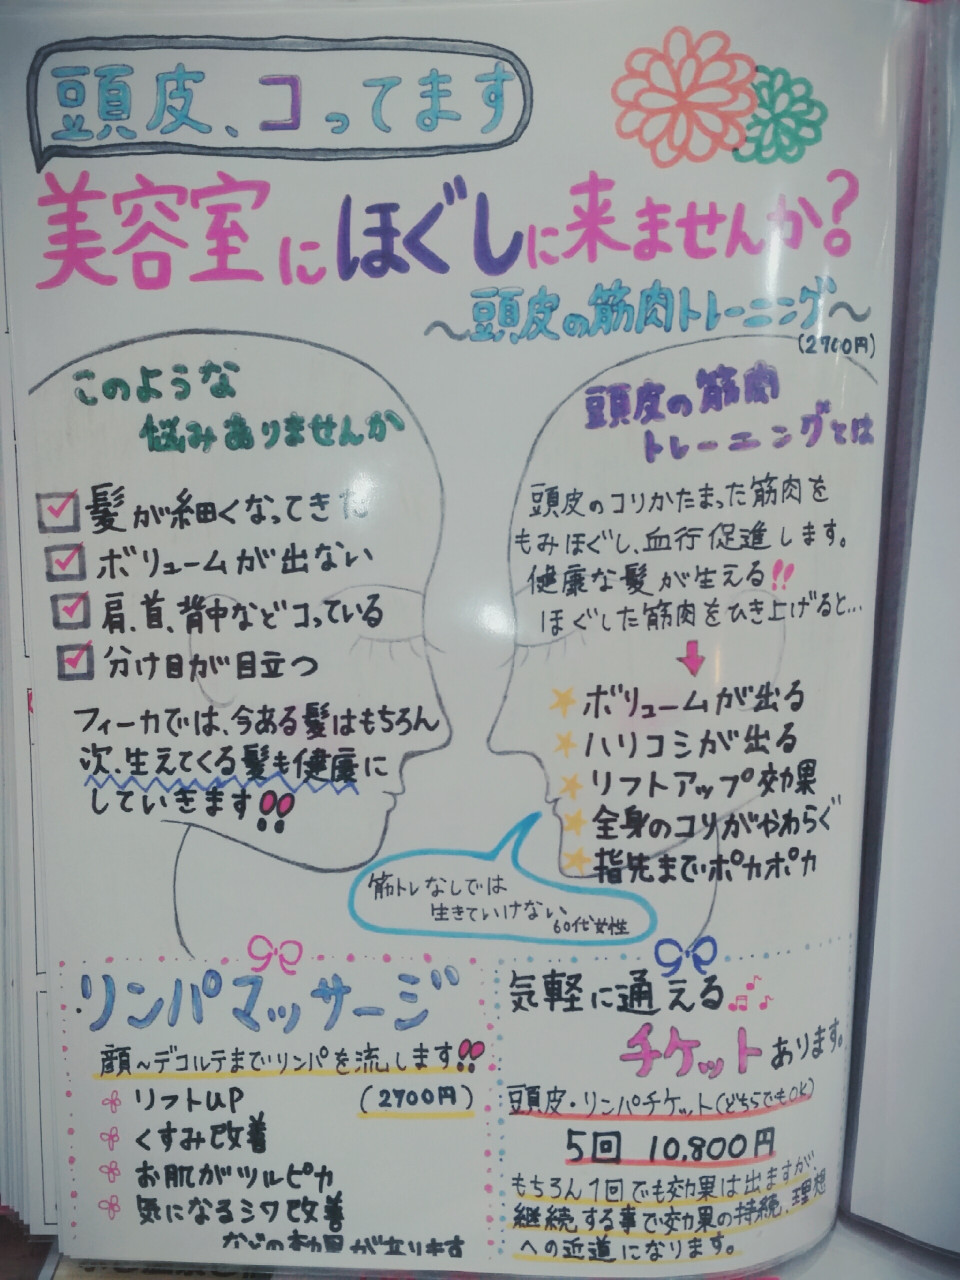 頭皮、コってます
美容室にほぐしに来ませんか?
〜頭皮の筋肉トレーニング〜
(2700円)
このような
悩みありませんか
髪が細くなってきた
ボリュームが出ない
肩、首、背中などコっている
分け目が目立つ
フィーカでは、今ある髪はもちろん
次、生えてくる髪も健康に
していきます!!
頭皮の筋肉
トレーニングとは
頭皮のコリかたまった筋肉を
もみほぐし、血行促進します。
健康な髪が生える!!
ほぐした筋肉をひき上げると...
ボリュームが出る
ハリコシが出る
リフトアップ効果
全身のコリがやわらぐ
指先までポカポカ
筋トレなしでは
生きていけない
60代女性
リンパマッサージ
顔〜デコルテまでリンパを流します!!
リフトUP
(2700円)
くすみ改善
お肌がツルピカ
気になるシワ改善
などの効果が有ります
気軽に通える
チケットあります。
頭皮・リンパチケット(どちらでもOK)
5回 10,800円
もちろん1回でも効果は出ますが、
継続する事で効果の持続、理想
への近道になります。